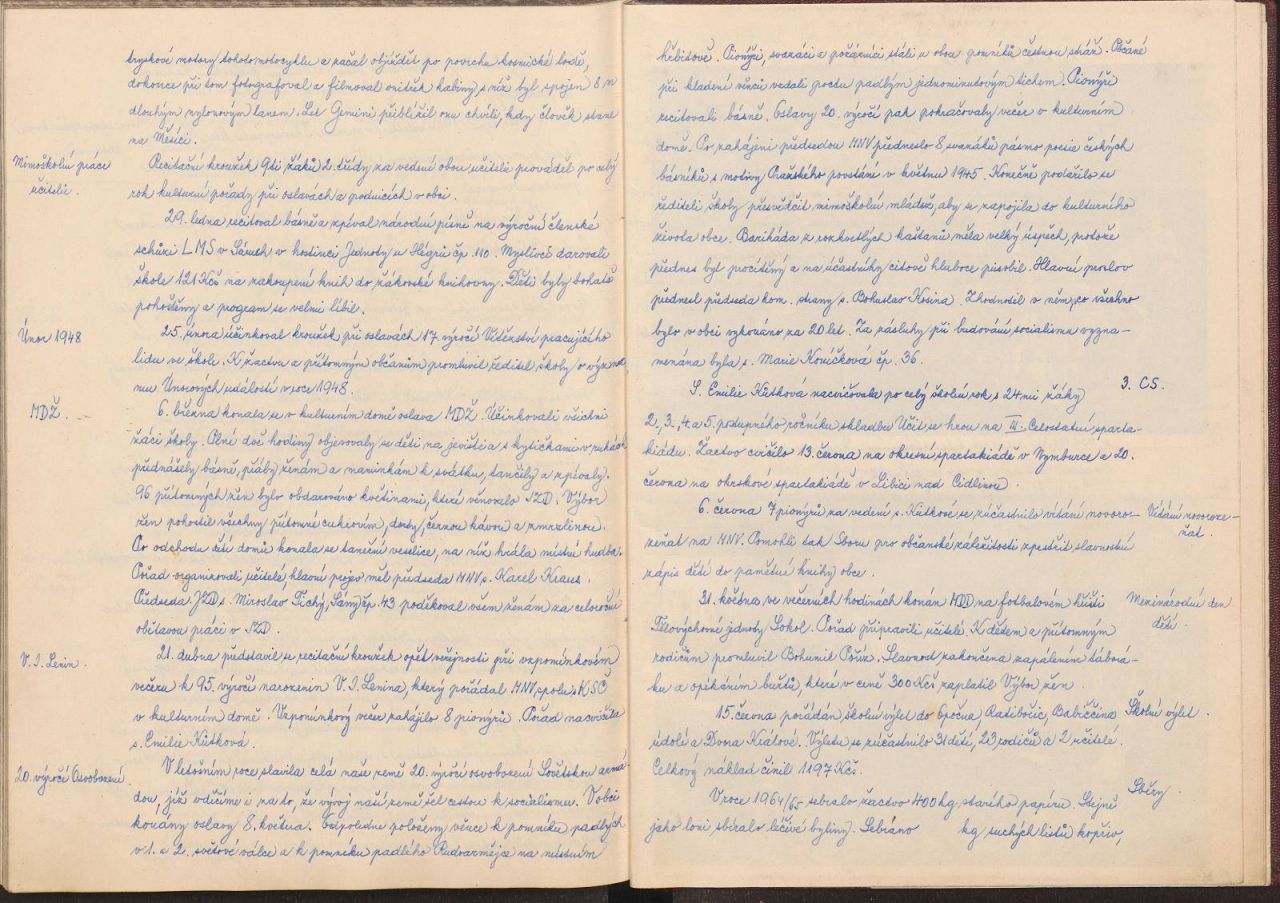 tryskové motory tohoto motocyklu a začal objíždět po povrchu kosmické lodě,
dokonce při tom fotografoval a filmoval vnitřek kabiny s níž byl spojen 8 m
dlouhým nylonovým lanem. Let Gemini přiblížil onu chvíli, kdy člověk stane
na Měsíci.
Mimoškolní práce
učitelů.
Recitační kroužek 9ti žáků 2. třídy za vedení obou učitelů prováděl po celý
rok kulturní pořady při oslavách a hodnicích v obci.
29. ledna recitoval básně a zpíval národní písně na výroční členské
schůzi LMS v Sánech v hostinci Jednoty u Hégrů čp. 110. Myslivci darovali
škole 121 Kčs na zakoupení knih do žákovské knihovny. Děti byly bohatě
pohoštěny a program se velmi líbil.
Únor 1948
25. února účinkoval kroužek při oslavách 17. výročí Vítězství pracujícího
lidu ve škole. K žactvu a přítomným občanům promluvil ředitel školy o význa-
mu Únorových událostí v roce 1948.
MDŽ.
6. března konala se v kulturním domě oslava MDŽ. Účinkovali všichni
žáci školy. Plné dvě hodiny objevovaly se děti na jevišti a s kytičkami v rukách
přednášely básně, přály ženám a maminkám k svátku, tančily a zpívaly.
96 přítomných žen bylo obdarováno květinami, které věnovalo JZD. Výbor
žen pohostil všechny přítomné cukrovím, dorty, černou kávou a zmrzlinou.
Po odchodu dětí domů konala se taneční veselice, na níž hrála místní hudba.
Pořad organizovali učitelé, hlavní projev měl předseda MNV s. Karel Kraus.
Předseda JZD s. Miroslav Tichý, Sány čp. 43 poděkoval všem ženám za celoroční
obětavou práci v JZD.
V. I. Lenin.
21. dubna představil se recitační kroužek opět veřejnosti při vzpomínkovém
večeru k 95. výročí narozenin V. I. Lenina, který pořádal MNV spolu s KSČ
v kulturním domě. Vzpomínkový večer zahájilo 8 pionýrů. Pořad nacvičila
s. Emilie Kutková.
20. výročí Osvobození.
V letošním roce slavila celá naše země 20. výročí osvobození Sovětskou armá
dou, jíž vděčíme i na to, že vývoj naší země šel cestou k socialismu. V obci
konány oslavy 8. května. Odpoledne položeny věnce k pomníku padlých
v 1. a 2. světové válce a k pomníku padlého Rudoarmějce na místním
hřbitově. Pionýři, svazáci a požárníci stáli u obou pomníků čestnou stráž. Občané
při kladení věnců vzdali poctu padlým jednominutovým tichem. Pionýři
recitovali básně. Oslavy 20. výročí pak pokračovaly večer v kulturním
domě. Po zahájení předsedou MNV předneslo 8 svazáků pásmo poesie českých
básníků s motivy Pražského povstání v květnu 1945. Konečně podařilo se
řediteli školy přesvědčit mimoškolní mládež, aby se zapojila do kulturního
života obce. Barikáda z rozkvetlých kaštanů měla velký úspěch, protože
přednes byl procítěný a na účastníky citově hluboce působil. Hlavní proslov
přednesl předseda kom. strany s. Bohuslav Kosina. Zhodnotil v něm, co všechno
bylo v obci vykonáno za 20 let. Za zásluhy při budování socialismu vyzna-
menána byla s. Marie Koníčková čp. 36.
3. CS.
S. Emilie Kutková nacvičovala po celý školní rok s 24mi žáky
2., 3., 4. a 5. postupného ročníku skladbu Učit se hrou na III. Celostátní sparta-
kiádu. Žactvo cvičilo 13. června na okresní spartakiádě v Nymburce a 20.
června na okrskové spartakiádě v Libici nad Cidlinou.
6. června 7 pionýrů za vedení s. Kutkové se zúčastnilo vítání novoro-
Vítání novoroze-
ňat.
zeňat na MNV. Pomohli tak Sboru pro občanské záležitosti zpestřit slavnostní
zápis dětí do pamětné knihy obce.
31. května ve večerních hodinách konán MDD na fotbalovém hřišti
Mezinárodní den
dětí.
Tělovýchovné jednoty Sokol. Pořad připravili učitelé. K dětem a přítomným
rodičům promluvil Bohumil Poříz. Slavnost zakončena zapálením táborá-
ku a opékáním buřtů, které v ceně 300 Kčs zaplatil Výbor žen.
15. června pořádán školní výlet do Opočna, Ratibořic, Babiččina
Školní výlet.
údolí a Dvora Králové. Výletu se zúčastnilo 31 dětí, 23 rodičů a 2 učitelé.
Celkový náklad činil 1197 Kčs.
Sběry.
V roce 1964/65 sebralo žactvo 400 kg starého papíru. Stejně
jako loni sbíralo léčivé byliny. Sebráno kg suchých listů kopřiv,